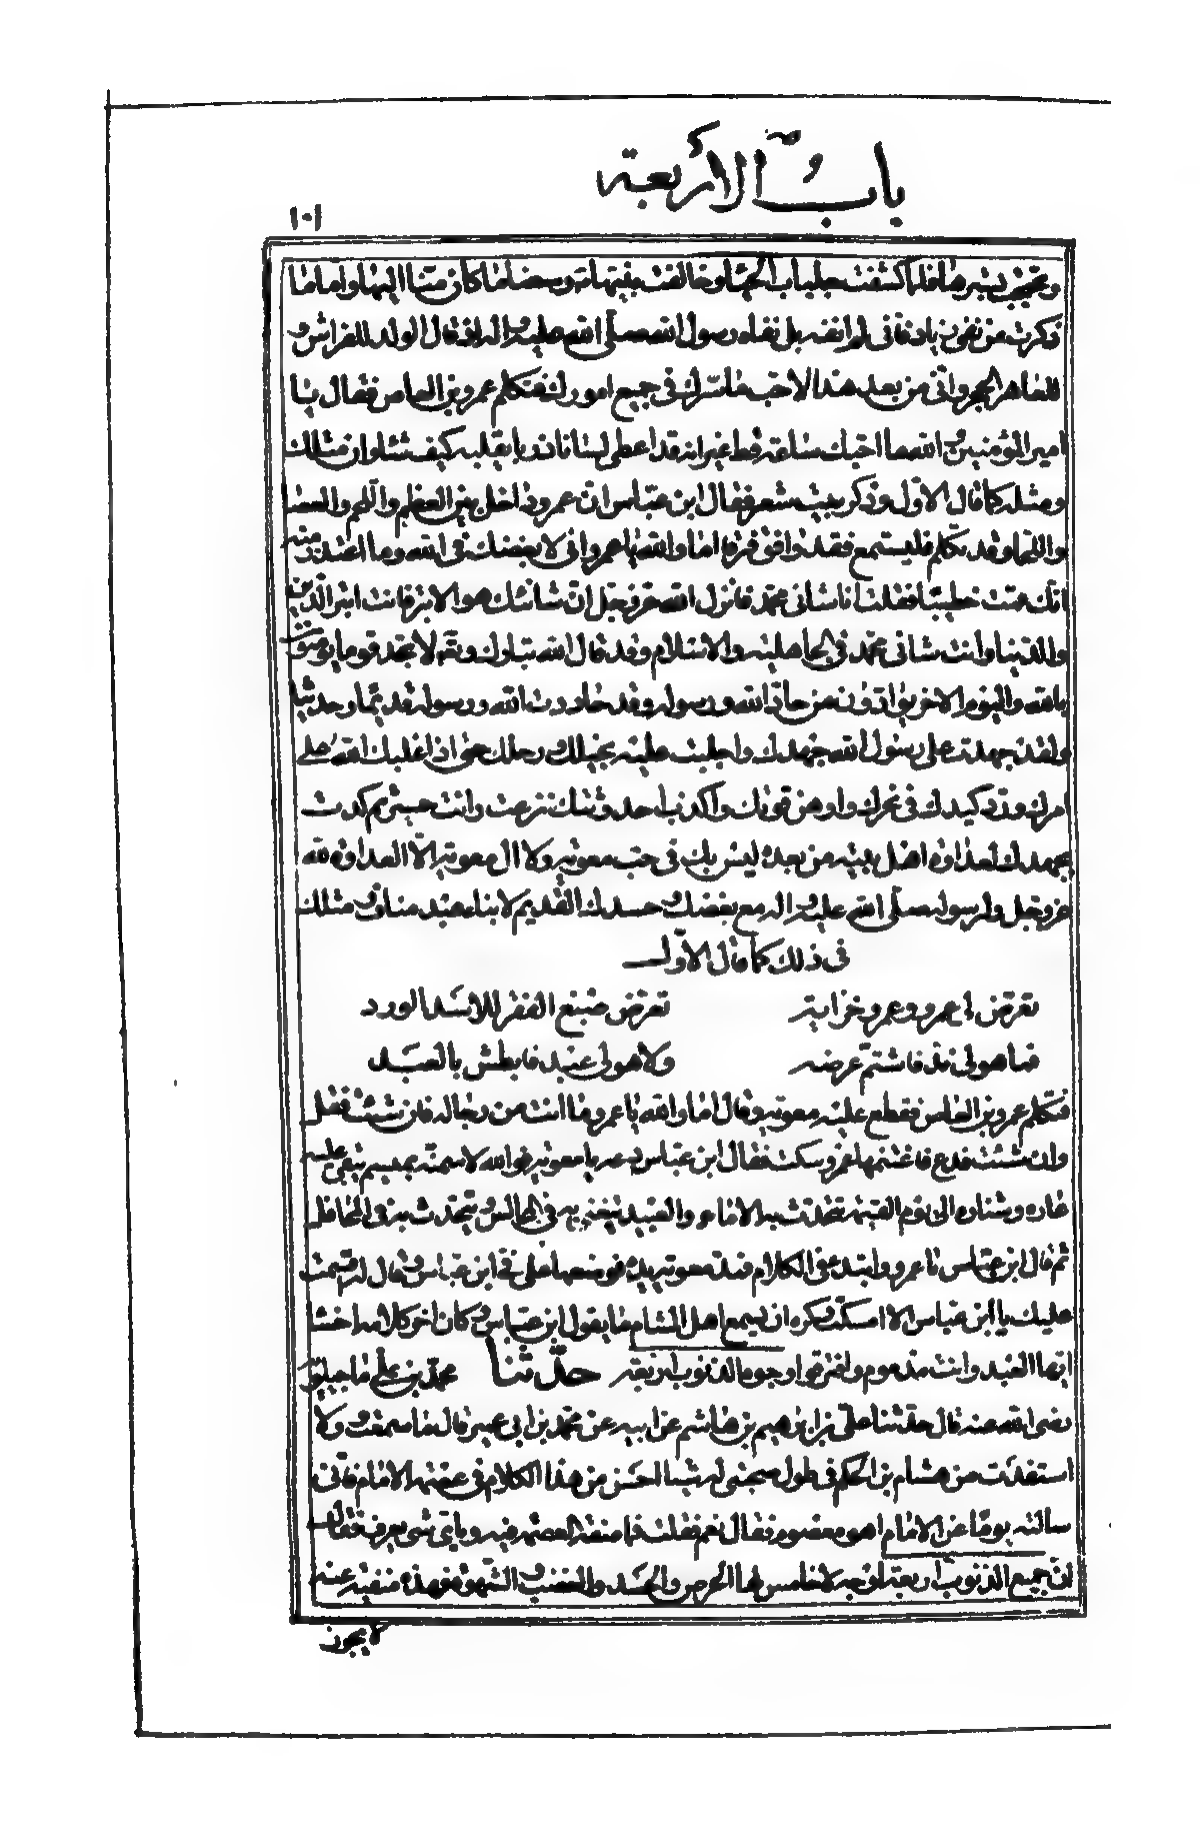 باب الأربعة
١٠١
فلما كشفت جلباب الحياء وخالفت نبيها صلى وسعنا ما كان منا اليها واما ما
ذكرت من نفي زياد فاني لم انفه بل نفاه رسول الله صلى الله عليه واله اذ قال الولد للفراش و
للعاهر الحجر واني من بعد هذا لاحب ما سرك في جميع امورك فتكلم عمرو بن العاص فقال يا
امير المؤمنين والله ما احبك ساعة قط غير انه قد اعطى لسانا ذربا يقلبه كيف شاء وان مثلك
ومثله كما قال الاول وذكر بيت شعر فقال ابن عباس ان عمرو داخل بين العظم واللحم والعصا
واللحا وقد تكلم فليستمع فقد وافق قرنا اما والله يا عمرو اني لابغضك في الله وما اعتذر منه
انك قمت خطيبا فقلت انا شاني محمد فانزل الله عز وجل ان شانئك هو الابتر فانت ابتر الدين
والدنيا وانت شاني محمد في الجاهلية والاسلام وقد قال الله تبارك وتع لا تجد قوما يؤمنون
بالله واليوم الاخر يوادون من حاد الله ورسوله وقد حاددت الله ورسوله قديما وحديثا
ولقد جهدت على رسول الله جهدك واجلبت عليه بخيلك ورجلك حتى اذا غلبك الله على
امرك ورد كيدك في نحرك واوهن قوتك واكذب احدوثتك نزعت وانت حسير ثم كدت
بجهدك لعداوة اهل بيته من بعده ليس بك في حب معوية ولا ال معوية الا العداوة لله
عز وجل ولرسوله صلى الله عليه واله مع بغضك وحسدك القديم لابناء عبد مناف ومثلك
في ذلك كما قال الاول
تعرض لي عمرو وعمرو خزاية تعرض ضبع القفر للاسد الورد
فما هو لي ند فاشتم عرضه ولا هو لي عبد فابطش بالعبد
فتكلم عمرو بن العاص فقطع عليه معوية وقال اما والله يا عمرو ما انت من رجاله فان شئت فقل
وان شئت فدع فاغتنمها عمرو وسكت فقال ابن عباس دعه يا معوية فوالله لاسمنه بميسم يبقى عليه
عاره وشناره الى يوم القيمة تتحدث به الاماء والعبيد ويتغنى به في المجالس ويتحدث به في المحافل
ثم قال ابن عباس يا عمرو وابتدء في الكلام فمد معوية يده فوضعها على في ابن عباس وقال له اقسمت
عليك يا ابن عباس الا امسكت وكره ان يسمع اهل الشام ما يقول ابن عباس وكان اخر كلامه اخسا
ايها العبد وانت مذموم وافترقوا وجوه الذنوب اربعة حدثنا محمد بن علي ماجيلويه
رضى الله عنه قال حدثنا علي بن ابرهيم بن هاشم عن ابيه عن محمد بن ابي عمير قال ما سمعت ولا
استفدت من هشام بن الحكم في طول صحبتي له شيئا احسن من هذا الكلام في عصمة الامام فاني
سالته يوما عن الامام اهو معصوم فقال نعم فقلت فما صفة العصمة فيه وباي شي يعرف فقال
ان جميع الذنوب اربعة اوجه لا خامس لها الحرص والحسد والغضب والشهوة فهذه منفية عنه
لا يجوز